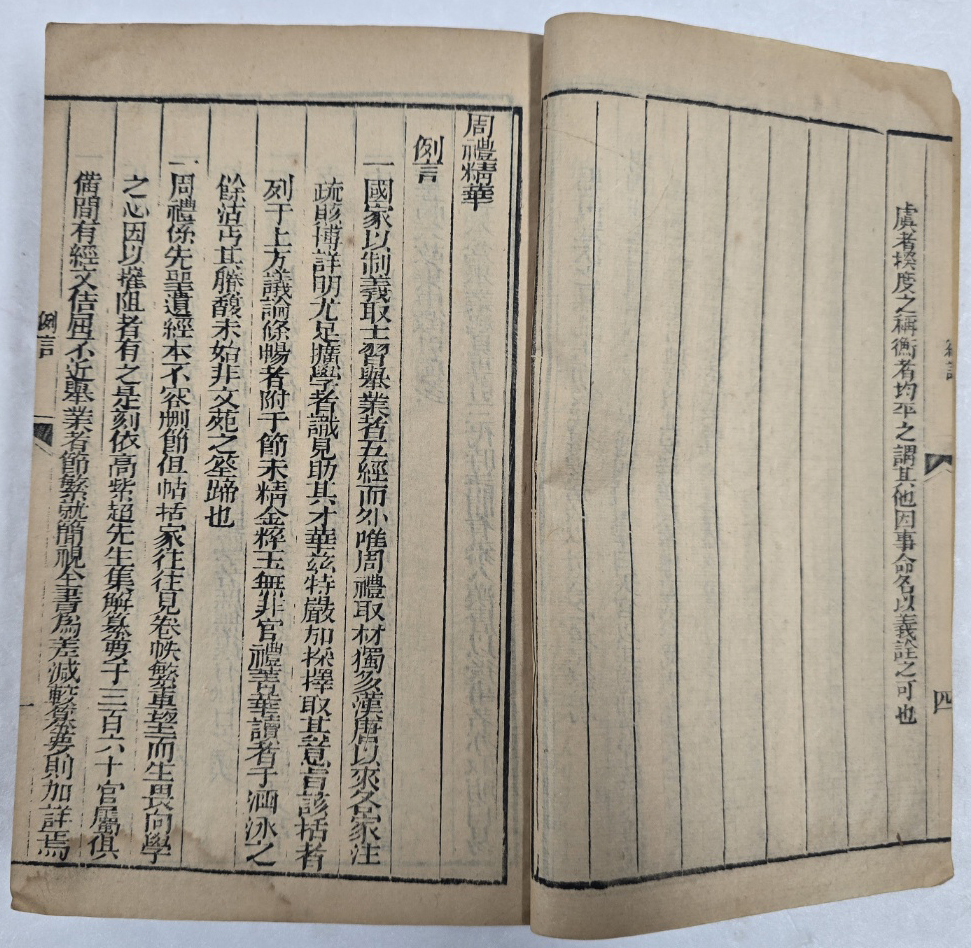 虞者揆度之稱衡者均平之謂其他因事命名以義詮之可也
四
周禮精華
例言
一國家以制義取士習舉業者五經而外唯周禮取材獨多漢唐以來名家注
疏賅博詳明尤足擴學者識見助其才華茲特嚴加採擇取其意旨該括者
列于上方議論條暢者附于節末精金粹玉無非官禮菁華讀者于涵泳之
餘沾丐其賸馥未始非文苑之筌蹄也
一周禮係先聖遺經本不容刪節但帖括家往往見卷帙繁重望而生畏向學
之心因以摧阻者有之是刻依高紫超先生集解纂要于三百六十官屬俱
備間有經文佶屈不近舉業者節繁就簡視全書爲差減較纂要則加詳焉
例言
一